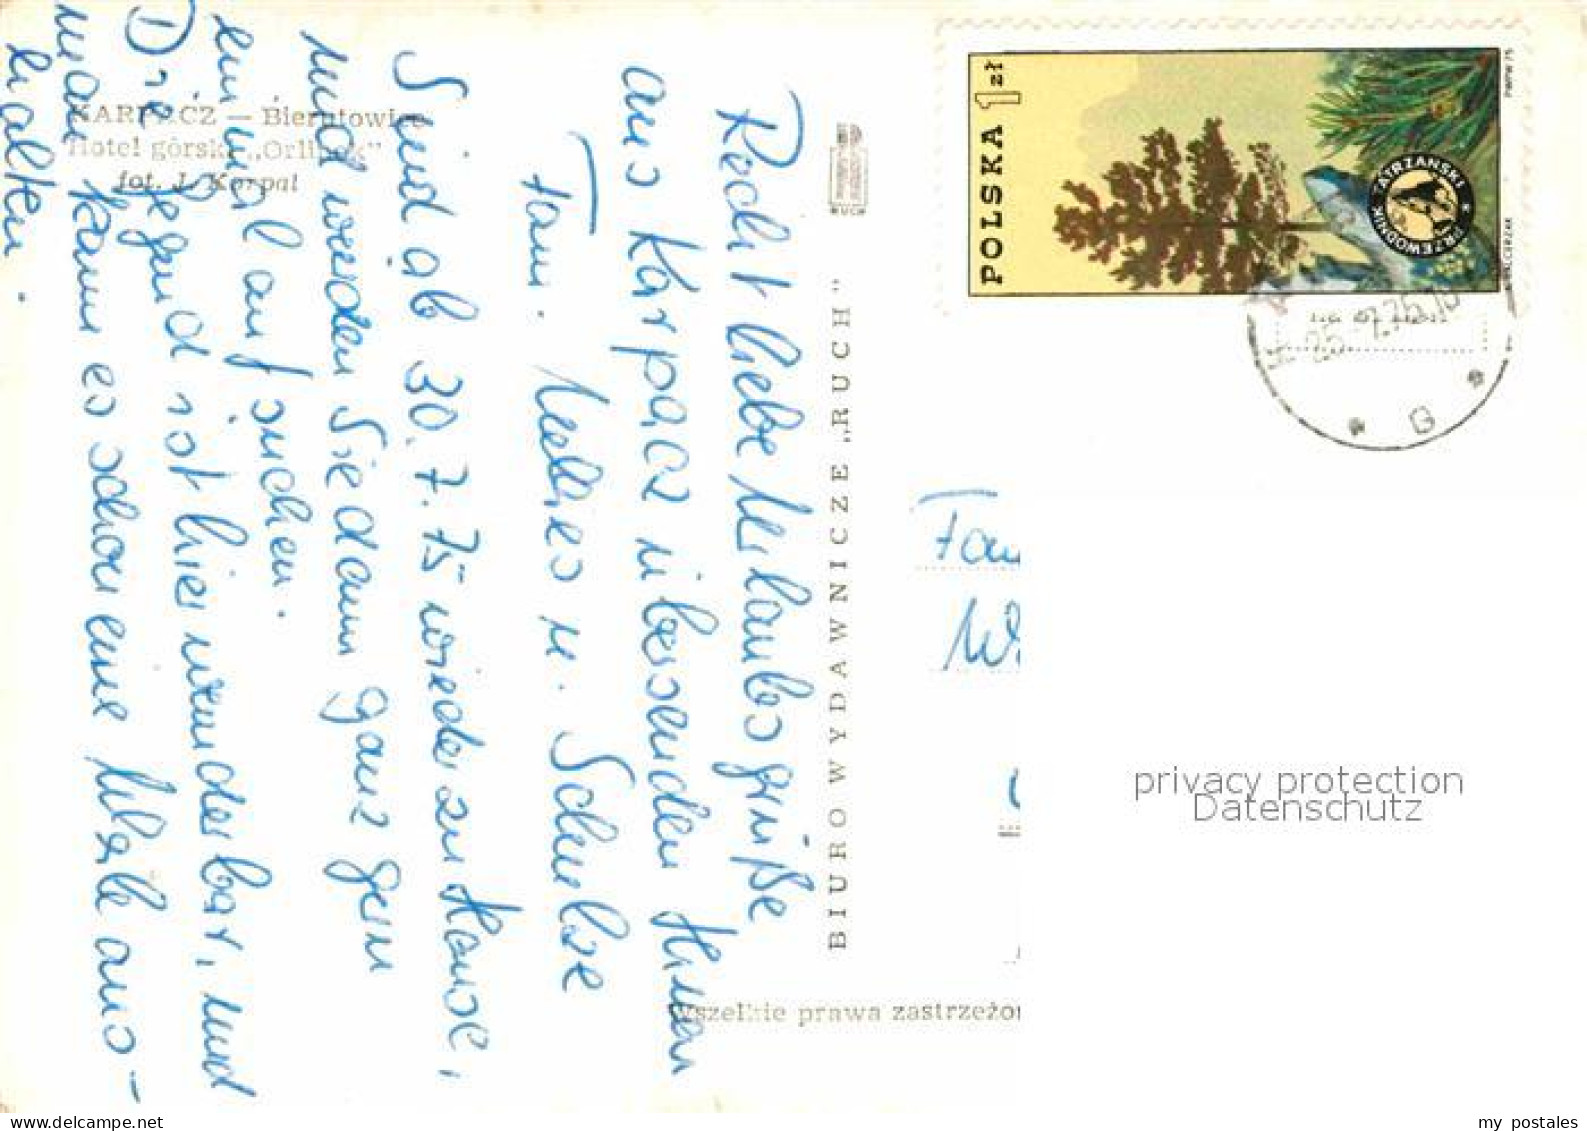 KARPACZ — Bierutowice
Hotel górski „Orlinek"
fot. J. Korpal
Recht liebe Urlaubsgrüße
aus Karpacz übersenden Ihnen
Fam. Melies u. Schulze
Sind ab 30.7.75 wieder zu Hause,
und werden Sie dann ganz gern
einmal aufsuchen.
Die Gegend ist hier wunderbar, und
man kann es schon eine Weile aus-
halten.
RUCH
BIURO WYDAWNICZE „RUCH"
wszelkie prawa zastrzeżon
POLSKA 1 zł
TATRZAŃSKI
PRZEWODNIK
PWPW 75
25.-7.75.
B
Fam
W.
privacy protection
Datenschutz
my postales